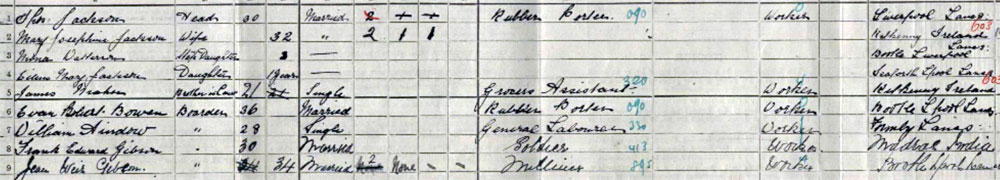 1 Thos. Jackson Head 30 Married 2 + + Rubber Porter 090 Worker Liverpool Lancs.
2 Mary Josephine Jackson Wife 32 " 2 1 1 Kilkenny Ireland 603
3 Mona Step Daughter 3 — Bootle Liverpool Lancs.
4 Eileen Mary Jackson Daughter 1 year — Seaforth Lpool Lancs.
5 James Brother in Law 21 Single Grocers Assistant 320 Worker Kilkenny Ireland 603
6 Evan Robt. Bowen Boarder 36 Married Rubber Porter 090 Worker Bootle Lpool Lancs
7 William Aindow " 28 Single General Labourer 330 Worker Formby Lancs.
8 Frank Edward Gibson " 30 Married Soldier 413 Worker Madras India
9 Jean Weir 34 34 Married 2 None – – Milliner Worker